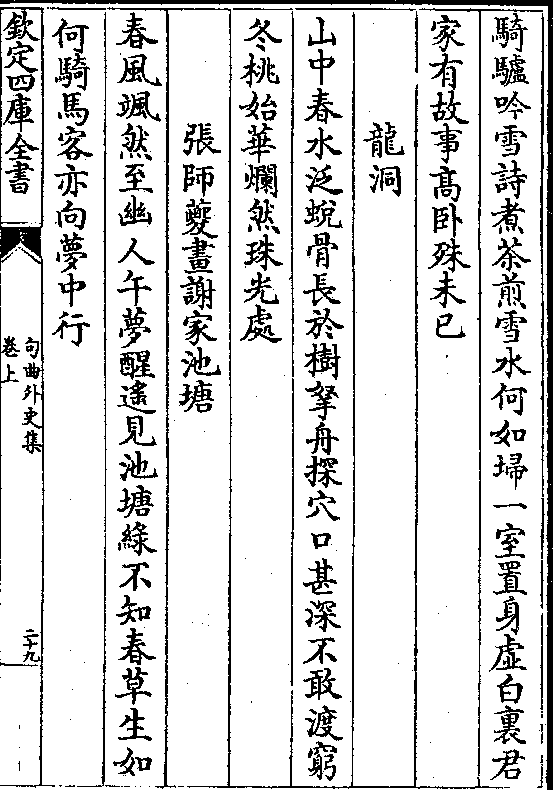 騎驢吟雪詩煮茶煎雪水何如埽一室置身虛白裏君
家有故事髙卧殊未已
龍洞
山中春水泛蛻骨長於樹拏舟探穴口甚深不敢渡窮
冬桃始華爛然珠光處
張師夔畫謝家池塘
春風颯然至幽人午夢醒遙見池塘綠不知春草生如
何騎馬客亦向夢中行
欽定四庫全書
句曲外史集
卷上
二十九